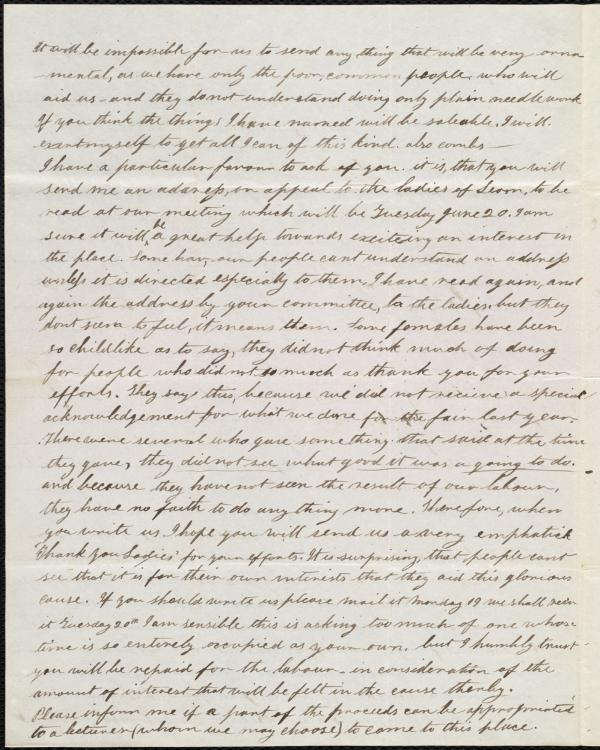 It will be impossible for us to send any thing that will be very orna
-mental, as we have only the poor, common people, who will
aid us - and they do not understand doing only plain needlework
If you think the things I have named will be saleable, I will
exert myself to get all I can of this kind. also combs -
I have a particular favour to ask of you. it is, that you will
send me an address, or appeal to the ladies of Leom, to be
read at our meeting which will be Tuesday June 20. I am
sure it will be a great help towards exciteing an interest in
the place. Some how, our people cant understand an address
unless it is directed especially to them, I have read again, and
again the address by your committee, to the ladies, but they
dont seem to feel, it means them. Some females have been
so childlike as to say, they did not think much of doing
for people who did not so much as thank you for your
efforts. They say this, because we did not recieve a special
acknowledgement for what we done for the fair last year.
There were several who gave something that said at the time
they gave, they did not see what good it was a going to do.
and because they have not seen the result of our labour,
they have no faith to do any thing more. Therefore, when
you write us, I hope you will send us a very emphatick
"Thank you Ladies" for your efforts. It is surprising, that people cant
see that it is for their own interests that they aid this glorious
cause. If you should write us please mail it Monday 19 we shall
it Tuesday 20th I am sensible this is asking too much of one whose
time is so entirely occupied as your own. but I humbly trust
you will be repaid for the labour - in consideration of the
amount of interest that will be felt in the cause thereby.
Please inform me if a part of the proceeds can be appropriated
to a lecturer (whom we may choose) to come to this place.